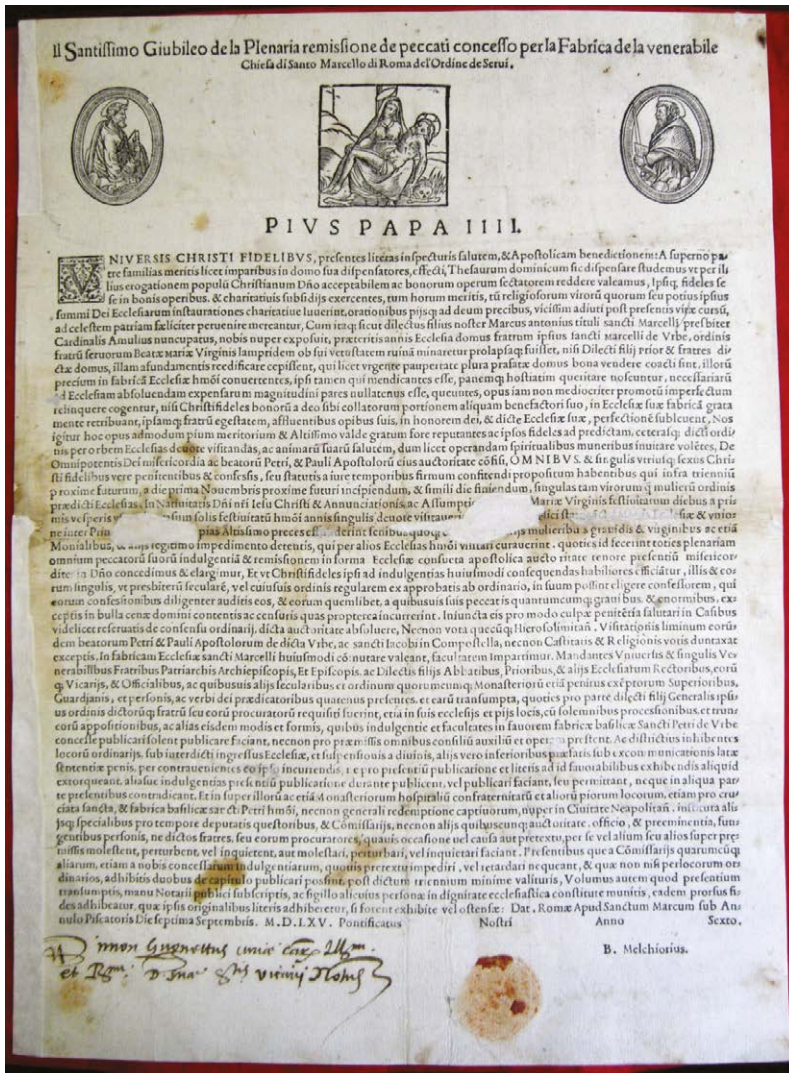 Il Santiſſimo Giubileo de la Plenaria remiſsione de peccati conceſſo per la Fabrica de la venerabile
Chieſa di Santo Marcello di Roma del'Ordine de Serui.
PIVS PAPA IIII.
VNIVERSIS CHRISTI FIDELIBVS, preſentes literas inſpecturis ſalutem, & Apoſtolicam benedictionem: A ſuperno pa
tre familias meritis licet imparibus in domo ſua diſpenſatores, effecti, Theſaurum dominicum ſic diſpenſare ſtudemus vt per il
lius erogationem populū Chriſtianum Dño acceptabilem ac bonorum operum ſectatorem reddere valeamus, Ipſiq; fideles ſe
ſe in bonis operibus. & charitatiuis ſubſidijs exercentes, tum horum meritis, tū religioſorum virorū quorum ſeu potius ipſius
ſummi Dei Eccleſiarum inſtaurationes charitatiue luuerint, orationibus pijsq; ad deum precibus, viciſſim adiuti poſt preſentis vitæ curſū,
ad celeſtem patriam fæliciter peruenire mereantur, Cum itaq; ſicut dilectus filius noſter Marcus antonius tituli ſancti Marcelli preſbiter
Cardinalis Amulius nuncupatus, nobis nuper expoſuit, præteritis annis Eccleſia domus fratrum ipſius ſancti Marcelli de Vrbe, ordinis
fratrū ſeruorum Beatæ Mariæ Virginis lampridem ob ſui vetuſtatem ruinā minaretur prolapſaq; fuiſſet, niſi Dilecti filij Prior & fratres di
ctæ domus, illam a fundamentis reedificare cepiſſent, qui licet vrgente paupertate plura præfatæ domus bona vendere coacti ſint, illorū
precium in fabricā Eccleſiæ hmōi conuertentes, ipſi tamen qui mendicantes eſſe, panemq; hoſtiatim queritare noſcuntur, neceſſariarū
ad Eccleſiam abſoluendam expenſarum magnitudini pares nullatenus eſſe, queuntes, opus iam non mediocriter promotū imperfectum
relinquere cogentur, niſi Chriſtifideles bonorū a deo ſibi collatorum portionem aliquam benefactori ſuo, in Eccleſiæ ſuæ fabricā grata
mente retribuant, ipſamq; fratrū egeſtatem, affluentibus opibus ſuis, in honorem dei, & dicte Eccleſiæ ſuæ, perfectionē ſubleuent, Nos
igitur hoc opus admodum pium meritorium & Altiſſimo valde gratum fore reputantes ac ipſos fideles ad predictam, ceteraſq; dicti ordi
nis per orbem Eccleſias deuote viſitandas, ac animarū ſuarū ſalutem, dum licet operandam ſpiritualibus muneribus inuitare volētes, De
Omnipotentis Dei miſericordia ac beatorū Petri, & Pauli Apoſtolorū eius auctoritate cōfiſi, OMNIBVS. & ſingulis vtriuſq; ſexus Chri
ſti fidelibus vere penitentibus & confeſſis, ſeu ſtatutis a iure temporibus firmum confitendi propoſitum habentibus qui infra trienniū
proxime futurum, a die prima Nouembris proxime futuri incipiendum, & ſimili die finiendum, ſingulas tam virorum q; mulierū ordinis
prædicti Eccleſias, In Natiuitatis Dñi ñri Ieſu Chriſti & Annunciationis, ac Aſſumptio Mariæ Virginis feſtiuitatum diebus a pri
mis veſperis ſolis feſtiuitatū hmōi annis ſingulis deuote viſitauer Eccleſiæ & vnio
ne inter Prin pias Altiſſimo preces ſenibus quoq; mulieribus grauidis & virginibus ac etiā
Monialibus, & alijs legitimo impedimento detentis, qui per alios Eccleſias hmōi viſitari curauerint. quoties id fecerint toties plenariam
omnium peccatorū ſuorū indulgentiā & remiſsionem in forma Eccleſiæ conſueta apoſtolica auctoritate tenore preſentiū miſericor
diter in Dño concedimus & elargimur, Et vt Chriſtifideles ipſi ad indulgentias huiuſmodi conſequendas habiliores efficiātur, illis & eo
rum ſingulis, vt preſbiterū ſeculare, vel cuiuſuis ordinis regularem ex approbatis ab ordinario, in ſuum poſſint eligere confeſſorem, qui
eorum confeſſionibus diligenter auditis eos, & eorum quemlibet, a quibuſuis ſuis peccatis quantumcumq; grauibus. & enormibus. ex
ceptis in bulla cenæ domini contentis ac cenſuris quas propterea incurrerint. Iniuncta eis pro modo culpæ penitētia ſalutari in Caſibus
videlicet reſeruatis de conſenſu ordinarij. dicta auctoritate abſoluere, Necnon vota quecūq; Hieroſolimitañ. Viſitationis liminum eorū
dem beatorum Petri & Pauli Apoſtolorum de dicta Vrbe, ac ſancti Iacobi in Compoſtella, necnon Caſtitatis & Religionis votis duntaxat
exceptis. In fabricam Eccleſiæ ſancti Marcelli huiuſmodi cōmutare valeant, facultatem Impartimur. Mandantes Vniuerſis & ſingulis Ve
nerabilibus Fratribus Patriarchis Archiepiſcopis, Et Epiſcopis. ac Dilectis filijs Abbatibus, Prioribus, & alijs Eccleſiarum Rectoribus, eorū
q; Vicarijs, & Officialibus, ac quibusuis alijs ſecularibus et ordinum quorumcumq; Monaſteriorū etiā penitus exēptorum Superioribus,
Guardjanis, et perſonis, ac verbi dei prædicatoribus quatenus preſentes. et earū tranſumpta, quoties pro parte dilecti filij Generalis ipſi
us ordinis dictorūq; fratrū ſeu eorū procuratorū requiſiti fuerint, etiā in ſuis eccleſijs et pijs locis, cū ſolemnibus proceſſionibus, et trun
corū appoſitionibus, ac alias eiſdem modis et formis, quibus indulgentie et facultates in fauorem fabricæ baſilicæ Sancti Petri de Vrbe
conceſſe publicari ſolent publicare faciant, necnon pro præmiſſis omnibus conſiliū auxiliū et operam preſtent. Ac diſtrictius inhibentes
locorū ordinarijs. ſub interdicti ingreſſus Eccleſiæ, et ſuſpenſionis a diuinis, alijs vero inferioribus prælatis ſub excommunicationis latæ
ſententiæ penis. per contrauenientes eo ipſo incurrendis, ne pro preſentiū publicatione et literis ad id fauorabilibus exhibendis aliquid
extorqueant. aliaſue indulgentias preſentiū publicatione durante publicent, vel publicari faciant, ſeu permittant, neque in aliqua par
te preſentibus contradicant. Et inſuper illorū ac etiā Monaſteriorum hoſpitaliū confraternitatū et aliorū piorum locorum, etiam pro cru
ciata ſancta, & fabrica baſilicæ ſancti Petri hmōi, necnon generali redemptione captiuorum, nuper in Ciuitate Neapolitañ. inſtituta alii
jſq; ſpecialibus pro tempore deputatis queſtoribus, & Cōmiſſarijs, necnon alijs quibuſcunq; auctoritate. officio, & preeminentia, fun
gentibus perſonis, ne dictos fratres. ſeu eorum procuratores, quauis occaſione vel cauſa aut pretextu, per ſe vel alium ſeu alios ſuper pre
miſſis moleſtent, perturbent, vel inquietent, aut moleſtari, perturbari, vel inquietari faciant. Preſentibus que a Cōmiſſarijs quarumcūq;
aliarum, etiam a nobis conceſſarum Indulgentiarum, quouis pretextu impediri, vel retardari nequeant, & quæ non niſi per locorum or
dinarios, adhibitis duobus de capitulo publicari poſſint, poſt dictum triennium minime valituris, Volumus autem quod preſentium
tranſumptis, manu Notarij publici ſubſcriptis, ac ſigillo alicuius perſonæ in dignitate eccleſiaſtica conſtitute munitis, eadem prorſus fi
des adhibeatur, quæ ipſis originalibus literis adhiberetur, ſi forent exhibite vel oſtenſæ: Dat. Romæ Apud Sanctum Marcum ſub An
nulo Piſcatoris Die ſeptima Septembris. M.D.LXV. Pontificatus Noſtri Anno Sexto.
B. Melchiorius.